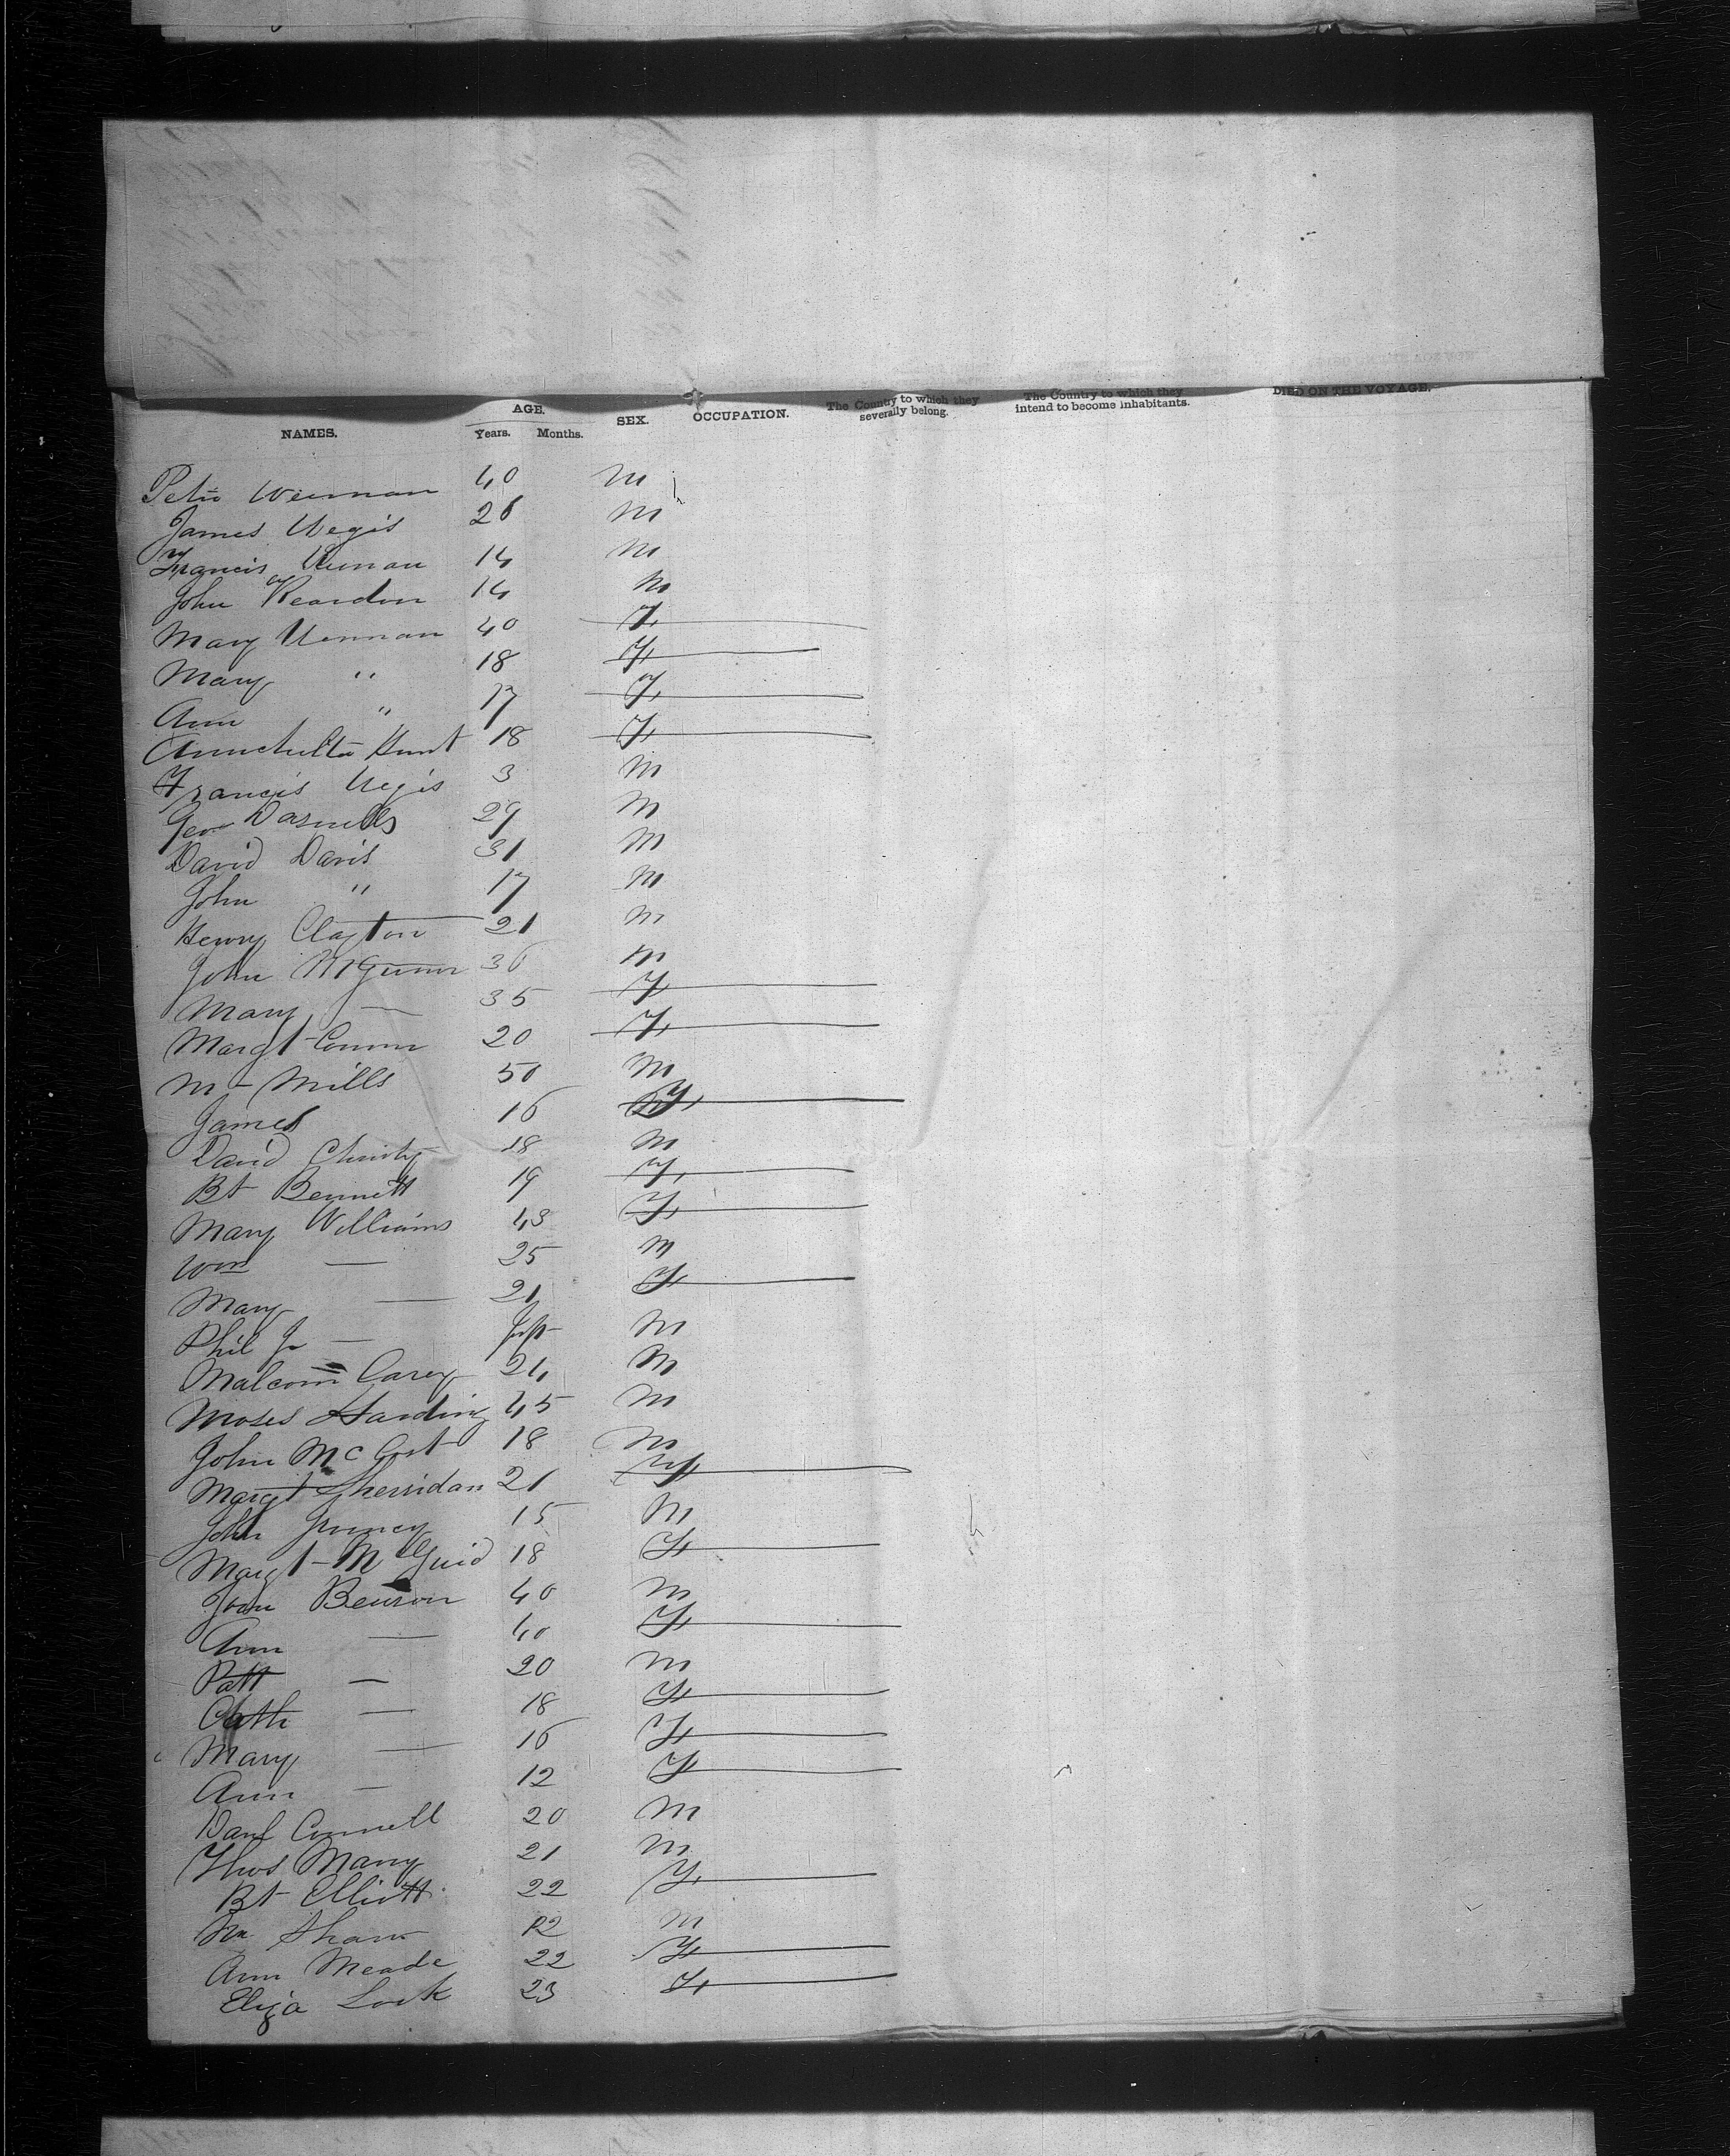 NAMES. AGE. Years. Months. SEX. OCCUPATION. The Country to which they severally belong. The Country to which they intend to become inhabitants. DIED ON THE VOYAGE.
40 M
James 26 M
Francis 14 M
John Reardon 14 M
Mary 40 F
Mary " 18 F
Ann " 17 F
Hunt 18 F
Francis 3 M
Geo 29 M
David Davis 31 M
John " 17 M
Henry Clayton 21 M
John 36 M
Mary — 35 F
Margt Connor 20 F
M Mills 50 M
James 16 F
David Christy 18 M
Bt Bennett 19 F
Mary Williams 43 F
Wm — 25 M
Mary — 21 F
Phil Jr — Inft M
Malcom Carey 24 M
Moses Harding 45 M
John McCort 18 M
Margt Sherridan 21 F
John 15 M
Margt 18 F
John Benson 40 M
Ann — 40 F
Patt — 20 M
Cath — 18 F
Mary — 16 F
Ann — 12 F
Danl Connell 20 M
Thos Many 21 M
Bt Elliott 22 F
Shaw 22 M
Ann Meade 22 F
Eliza Lock 23 F